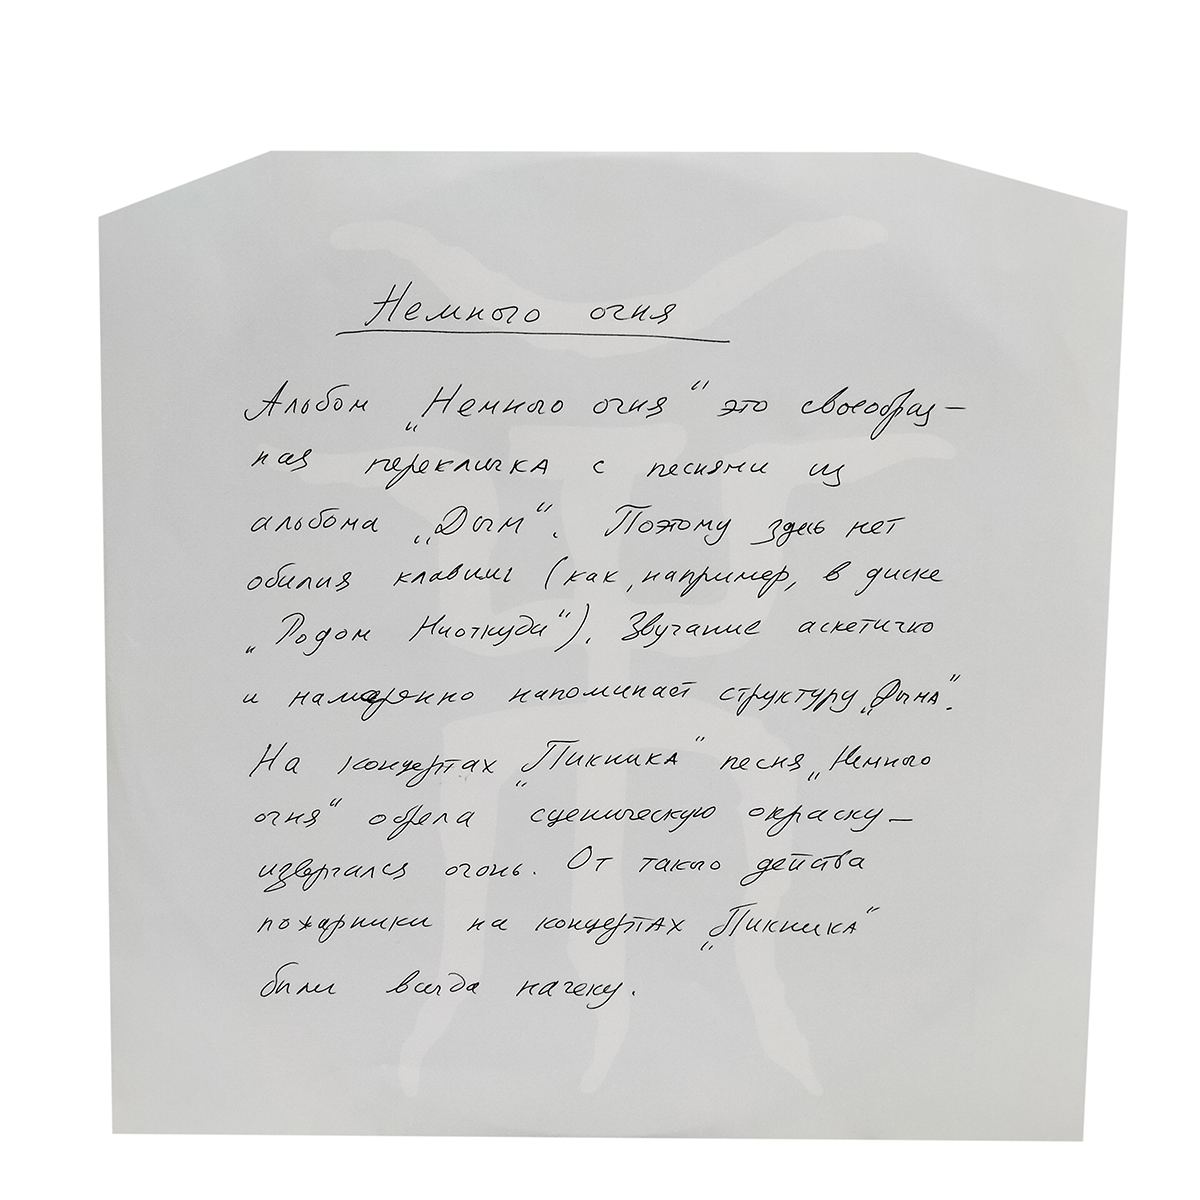 Немного огня
Альбом „Немного огня“ это своеобраз-
ная перекличка с песнями из
альбома „Дым“. Поэтому здесь нет
обилия клавиш (как, например, в диске
„Родом Ниоткуда“). Звучание аскетично
и намеренно напоминает структуру „Дыма“.
На концертах „Пикника“ песня „Немного
огня“ обрела сценическую окраску –
извергался огонь. От такого действа
пожарники на концертах „Пикника“
были всегда начеку.